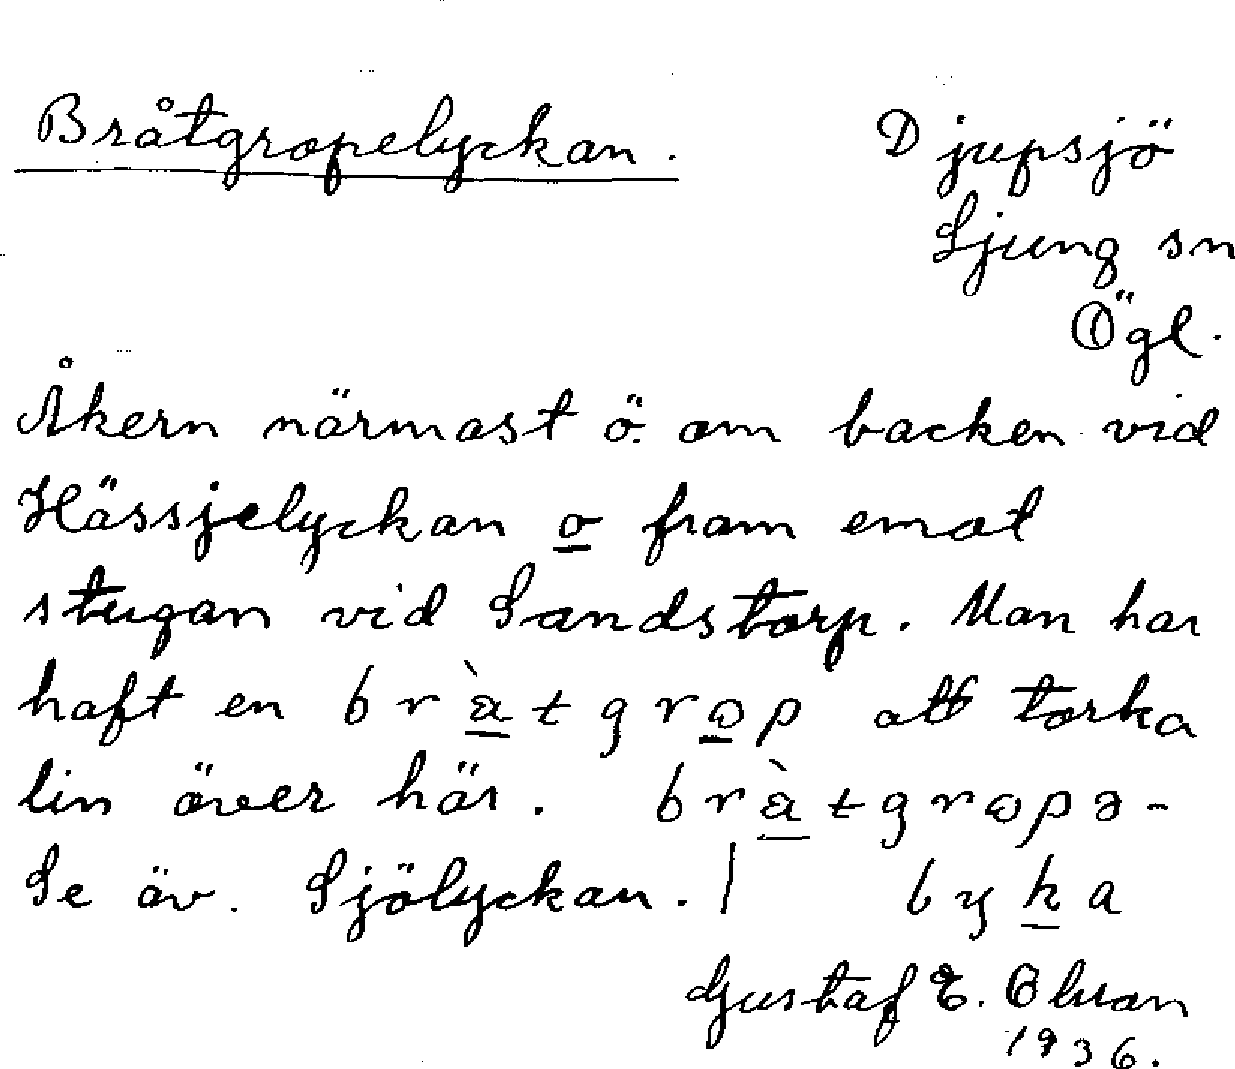 Bråtgropelyckan.
Djupsjö
Ljung sn
Ögl.
Åkern närmast ö. om backen vid
Hässjelyckan o fram emot
stugan vid Sandstorp. Man har
haft en bràtgrop att torka
lin över här. bràtgropə-
Se äv. Sjölyckan. | lyka
Gustaf E.
1936.